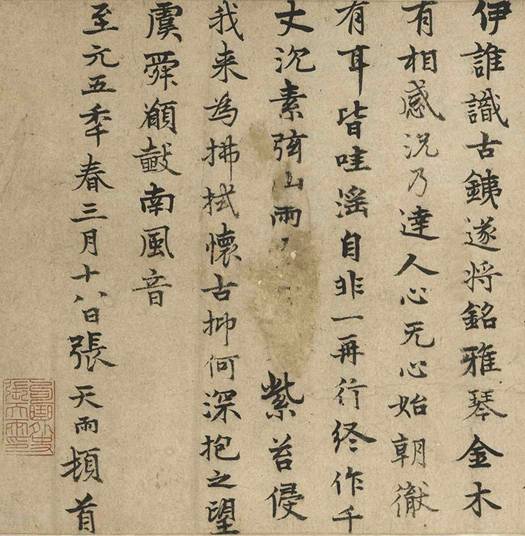 伊誰識古銕遂将銘雅琴金木
有相感況乃達人心无心始朝徹
有耳皆哇滛自非一再行終作千
丈沉素弦山雨紫苔侵
我来為拂拭懷古抑何深抱之望
虞舜願鼓南風音
至元五秊春三月十八日張天雨頓首